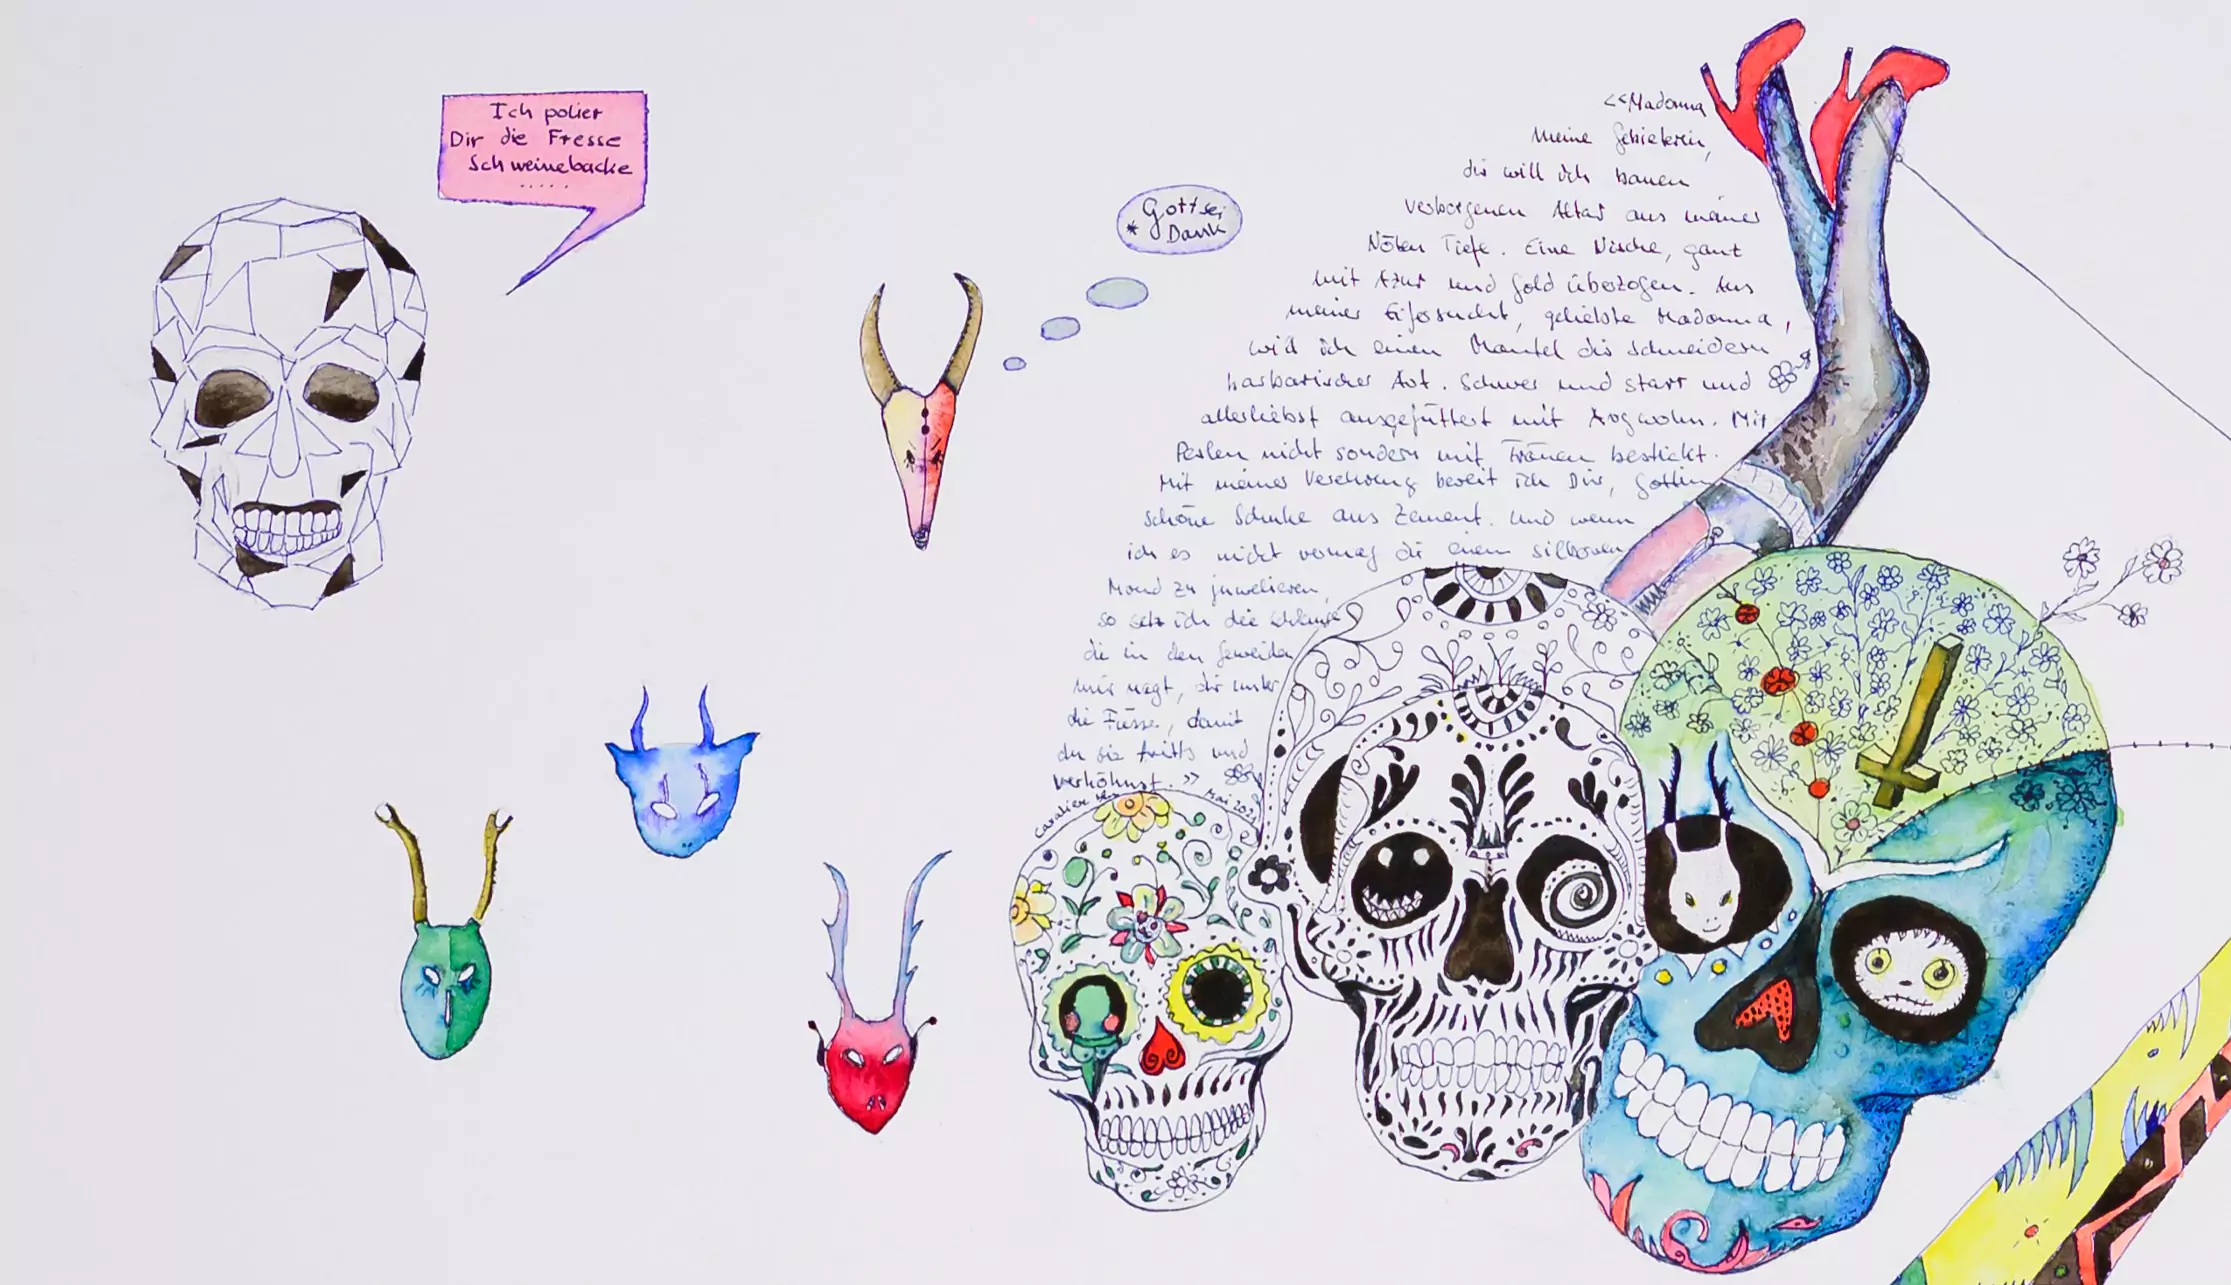 Ich polier
Dir die Fresse
Schweinebacke
.....
* Gott sei
Dank
<<Madonna
meine Gebieterin,
dir will ich bauen
verborgenen Altar aus meiner
Nöten Tiefe. Eine Nische, ganz
mit Azur und Gold überzogen. Aus
meiner Eifersucht, geliebte Madonna,
will ich einen Mantel dir schneidern
barbarischer Art. Schwer und starr und
allerliebst ausgefüttert mit Argwohn. Mit
Perlen nicht sondern mit Tränen bestickt.
Mit meiner Verehrung bereit ich Dir, Göttin
schöne Schuhe aus Zement. Und wenn
ich es nicht vermag dir einen silbernen
Mond zu juwelieren,
so setz ich die Schlange
die in den Geweiden
mir nagt, dir unter
die Füsse, damit
du sie trittst und
verhöhnst.>>
Mai